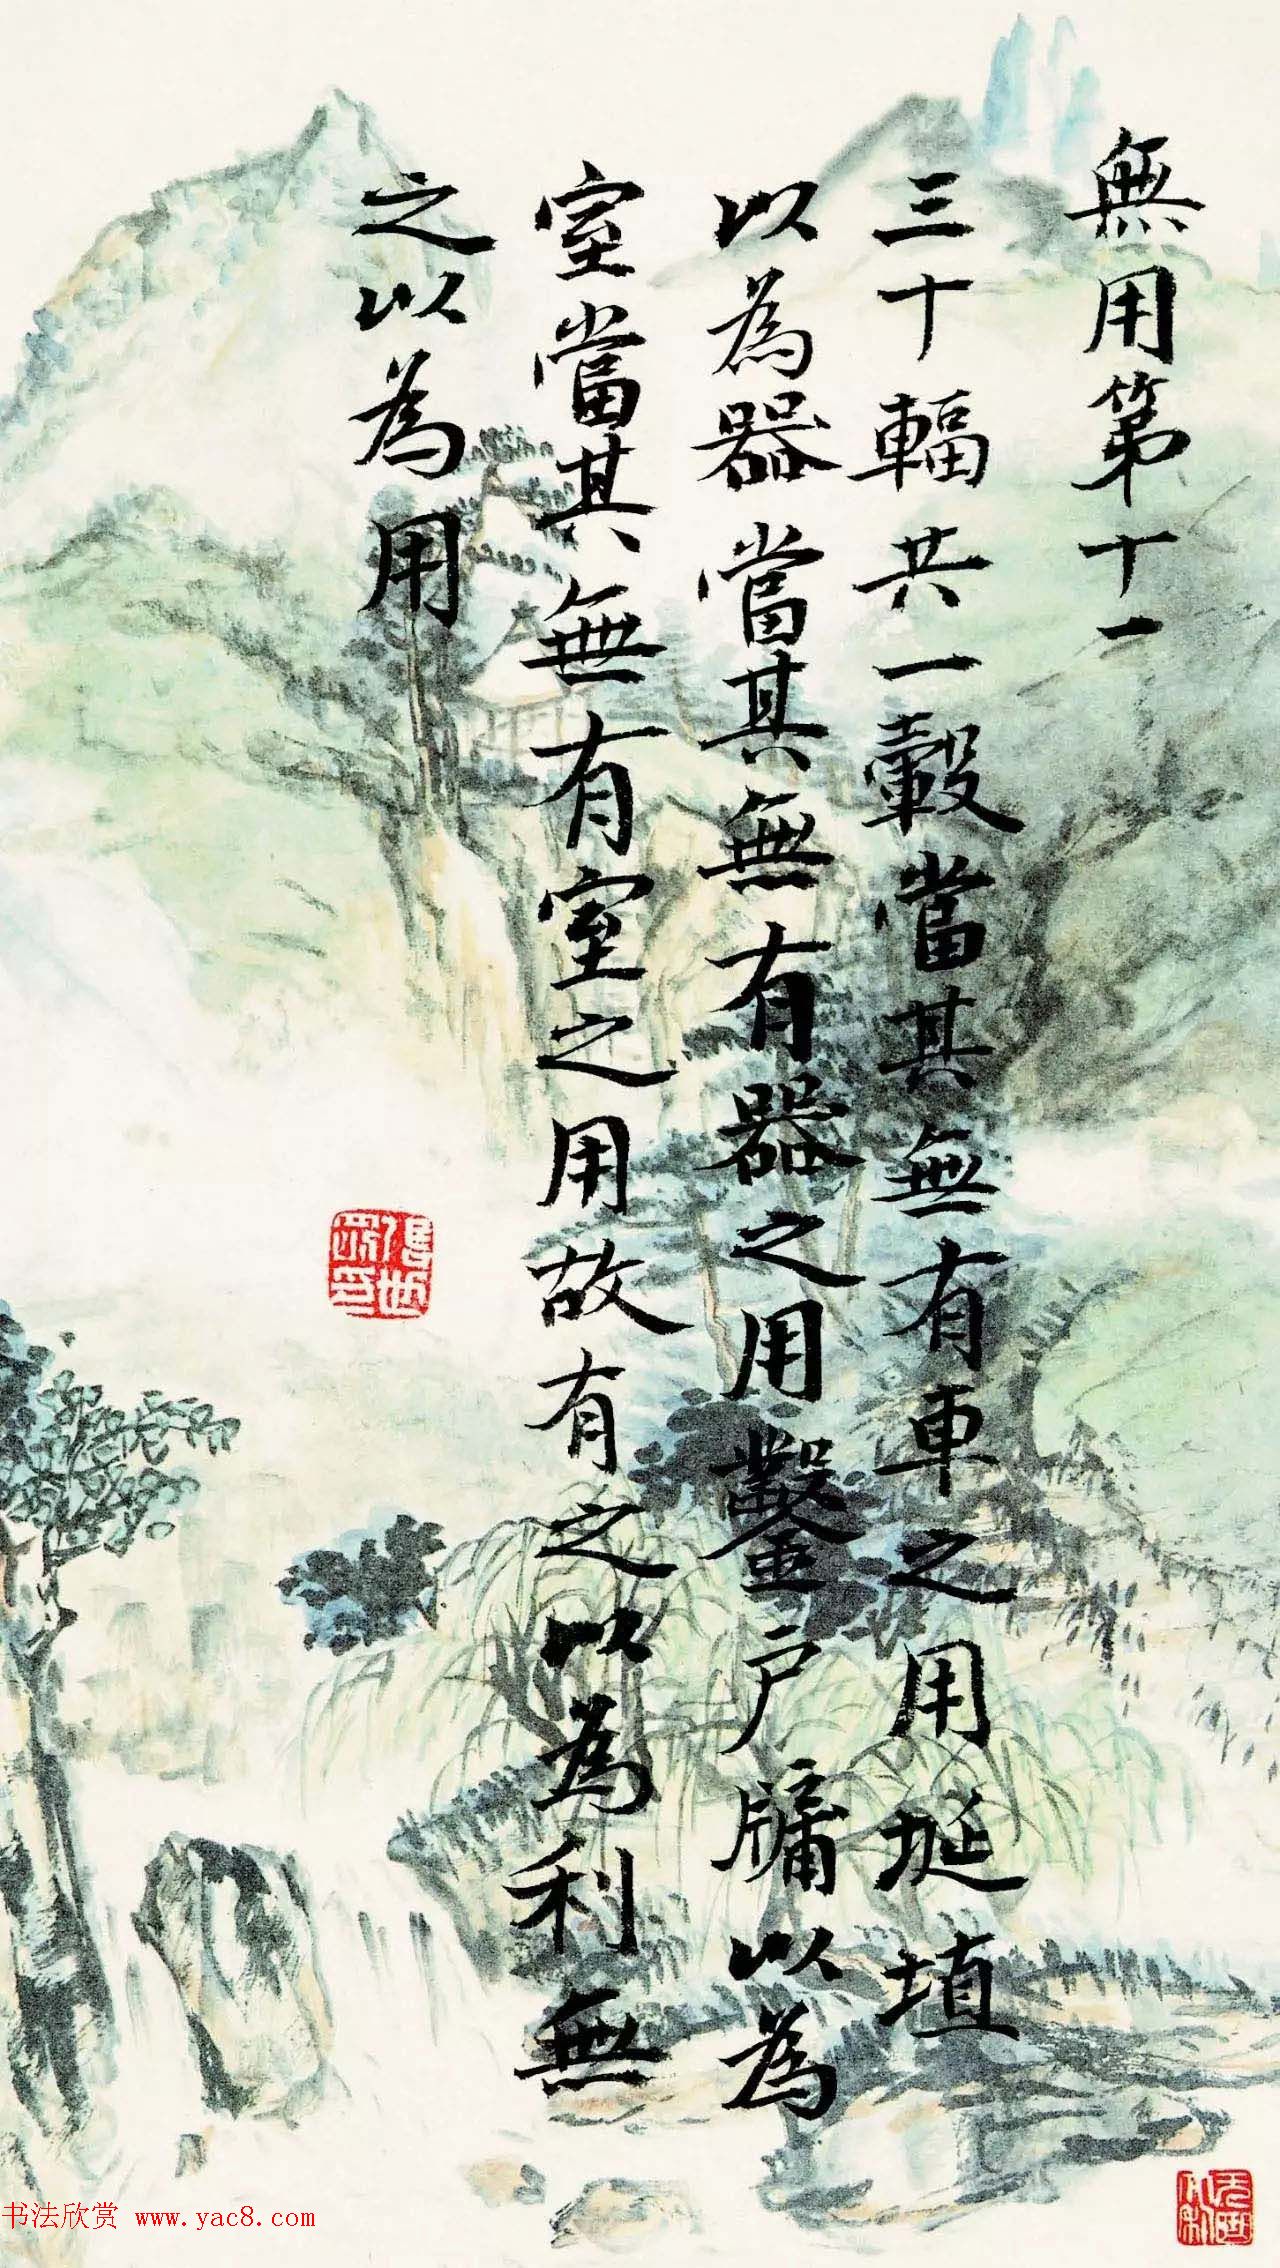 無用第十一
三十輻共一轂當其無有車之用埏埴
以為器當其無有器之用鑿户牖以為
室當其無有室之用故有之以為利無
之以為用
书法欣赏 www.yac8.com